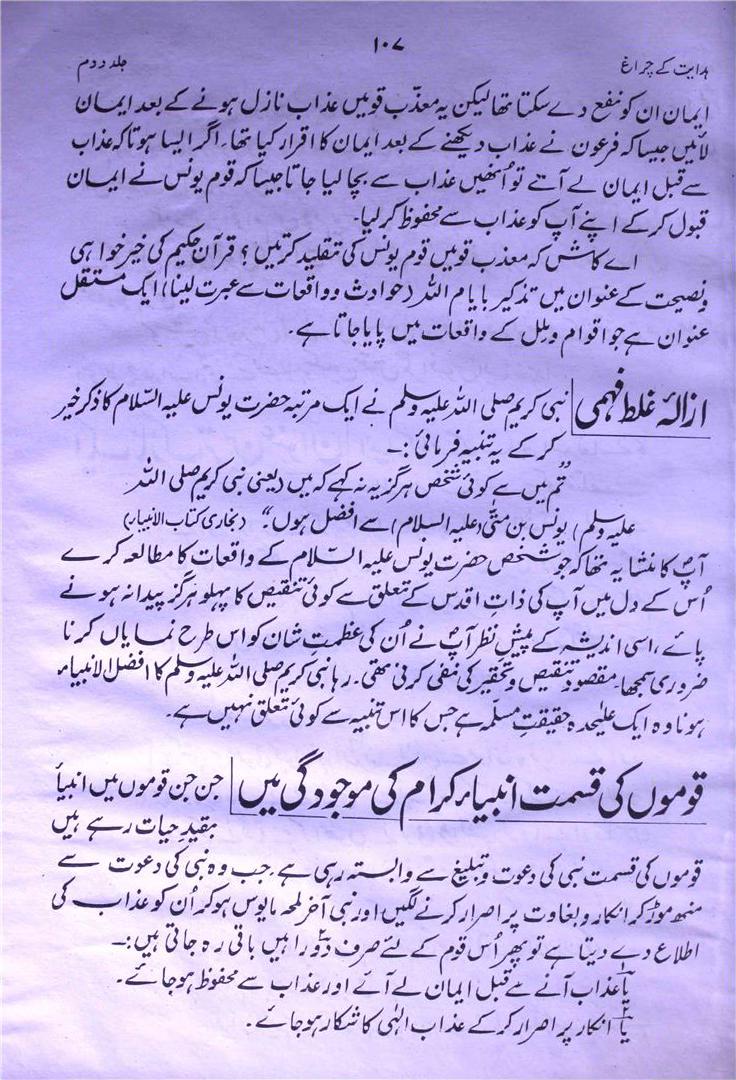 ۱۰۷
ہدایت کے چراغ
جلد دوم
ایمان ان کو نفع دے سکتا تھا لیکن یہ معذّب قومیں عذاب نازل ہونے کے بعد ایمان
لائیں جیسا کہ فرعون نے عذاب دیکھنے کے بعد ایمان کا اقرار کیا تھا۔ اگر ایسا ہوتا کہ عذاب
سے قبل ایمان لے آتے تو اُنھیں عذاب سے بچا لیا جاتا جیسا کہ قوم یونس نے ایمان
قبول کر کے اپنے آپ کو عذاب سے محفوظ کر لیا۔
اے کاش کہ معذب قومیں قوم یونس کی تقلید کرتیں؟ قرآن حکیم کی خیر خواہی
و نصیحت کے عنوان میں تذکیر بایام اللہ (حوادث و واقعات سے عبرت لینا) ایک مستقل
عنوان ہے جو اقوام و ملل کے واقعات میں پایا جاتا ہے۔
ازالۂ غلط فہمی نبی کریم صلی اللہ علیہ وسلم نے ایک مرتبہ حضرت یونس علیہ السّلام کا ذکر خیر
کر کے یہ تنبیہ فرمائی:۔
"تم میں سے کوئی شخص ہرگز یہ نہ کہے کہ میں (یعنی نبی کریم صلی اللہ
علیہ وسلم) یونس بن متّٰی (علیہ السلام) سے افضل ہوں۔" (بخاری کتاب الانبیار)
آپؐ کا منشا یہ تھا کہ جو شخص حضرت یونس علیہ السّلام کے واقعات کا مطالعہ کرے
اُس کے دل میں آپ کی ذاتِ اقدس کے تعلق سے کوئی تنقیص کا پہلو ہرگز پیدا نہ ہونے
پائے، اسی اندیشہ کے پیش نظر آپؐ نے اُن کی عظمتِ شان کو اس طرح نمایاں کرنا
ضروری سمجھا۔ مقصود تنقیص و تحقیر کی نفی کرنی تھی۔ رہا نبی کریم صلی اللہ علیہ وسلم کا افضل الانبیاء
ہونا وہ ایک علیٰحدہ حقیقتِ مسلّمہ ہے جس کا اس تنبیہ سے کوئی تعلق نہیں ہے۔
قوموں کی قسمت انبیاء کرام کی موجودگی میں جن جن قوموں میں انبیاء
بقیدِ حیات رہے ہیں
قوموں کی قسمت نبی کی دعوت و تبلیغ سے وابستہ رہی ہے۔ جب وہ نبی کی دعوت سے
منھ موڑ کر انکار و بغاوت پر اصرار کرنے لگیں اور نبی آخر لمحہ مایوس ہو کر اُن کو عذاب کی
اطلاع دے دیتا ہے تو پھر اُس قوم کے لئے صرف دو۲ راہیں باقی رہ جاتی ہیں:۔
یا۱ عذاب آنے سے قبل ایمان لے آئے اور عذاب سے محفوظ ہو جائے۔
یا۲ انکار پر اصرار کر کے عذاب الٰہی کا شکار ہو جائے۔